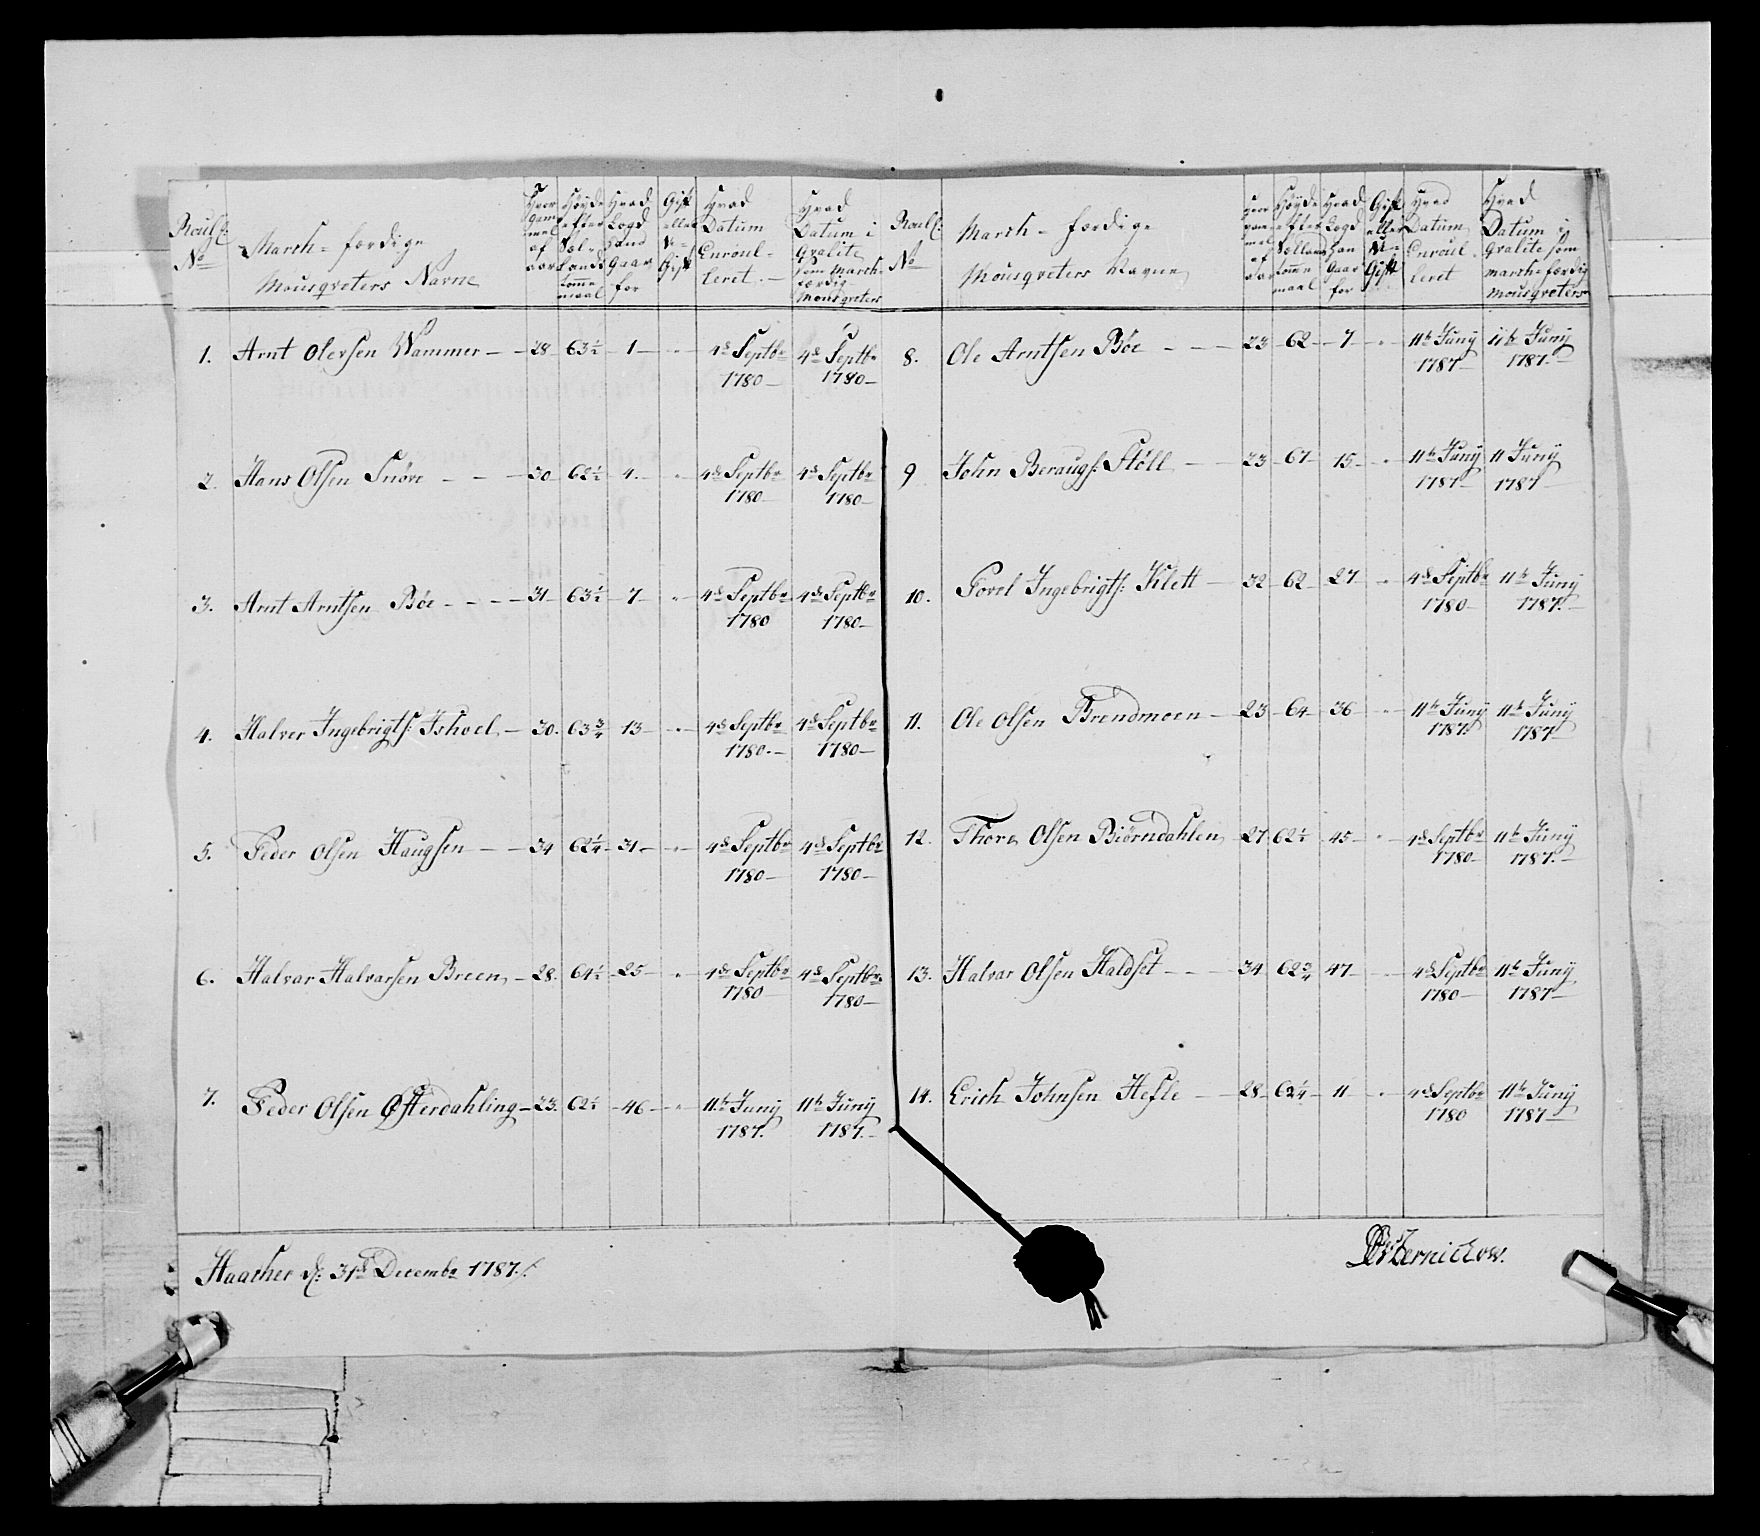 Roull: No
Marsh-færdige Mousqveters Navne
Hvor gammel af aar
Høyde efter Sællands tomme maal
Hvad Lægd Hand Gaar for
Gift eller U-Gift
Hvad Datum Enroulleret
Hvad Datum i Qvalite som Marsh-færdig Mousqveters
1. Arnt Olevsen Wammer 28 63½ 1 " 4de Septbr 1780 4de Septbr 1780
2. Hans Olsen Snøve 30 62½ 4. " 4de Septbr 1780 4de Septbr 1780
3. Arnt Arntsen Böe 31 63½ 7 " 4de Septbr 1780 4de Septbr 1780
4. Halver Ingebrigts: Ishoel 30. 63¾ 13 " 4de Septbr 1780. 4de Septbr 1780
5. Peder Olsen Haugsen 34 62¼ 31 " 4de Septbr 1780 4de Septbr 1780
6. Halvar Halvarsen Breen 28. 64½ 25 " 4de Septbr 1780 4de Septbr 1780
7. Peder Olsen Østerdahling 23. 62½ 46 " 11te Junÿ 1787. 11te Junÿ 1787.
Roull: No
Marsh-færdige Mousqveters Navne
Hvor gammel af aar
Høyde efter Sællands tomme maal
Hvad Lægd Han Gaar for
Gift eller U-Gift
Hvad Datum Enroulleret
Hvad Datum i Qvalite som marsh-færdig Mousqveters
8. Ole Arntsen Böe 23 62 7 " 11te Junÿ 1787 11te Junÿ 1787.
9 John Beraugs: Stöll 23 67 15 " 11te Junÿ 1787 11 Junÿ 1787
10. Povel Ingebrigts: Klett 32 62 27 " 4de Septbr 1780 11te Junÿ 1787.
11. Ole Olsen Brendmoen 23 64 36 " 11te Junÿ 1787. 11te Junÿ 1787
12. Thore Olsen Biörndahlen 27 62½ 45 " 4de Septbr 1780 11te Junÿ 1787.
13. Halvar Olsen Haldset 34 62¾ 47 " 4de Septbr 1780 11te Junÿ 1787
14. Erich Johnsen Hefle 28 62¼ 11 " 4de Septbr 1780 11te Junÿ 1787
Haacher d: 31de Decembr 1787.